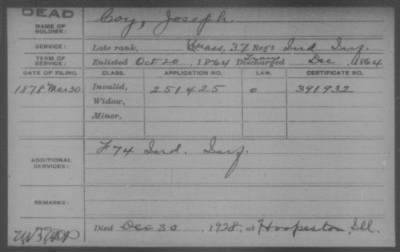 DEAD
NAME OF SOLDIER: Coy, Joseph.
SERVICE: Late rank, Unass, 37 Reg't Ind Inf.
TERM OF SERVICE: Enlisted Oct 20, 1864 Discharged Trans Dec, 1864
DATE OF FILING. CLASS. APPLICATION NO. LAW. CERTIFICATE NO.
1878 Mar 30 Invalid, 251425 391932
Widow,
Minor,
ADDITIONAL SERVICES: F 74 Ind. Inf.
REMARKS:
Died Dec 30 1928, at Hoopeston, Ill.